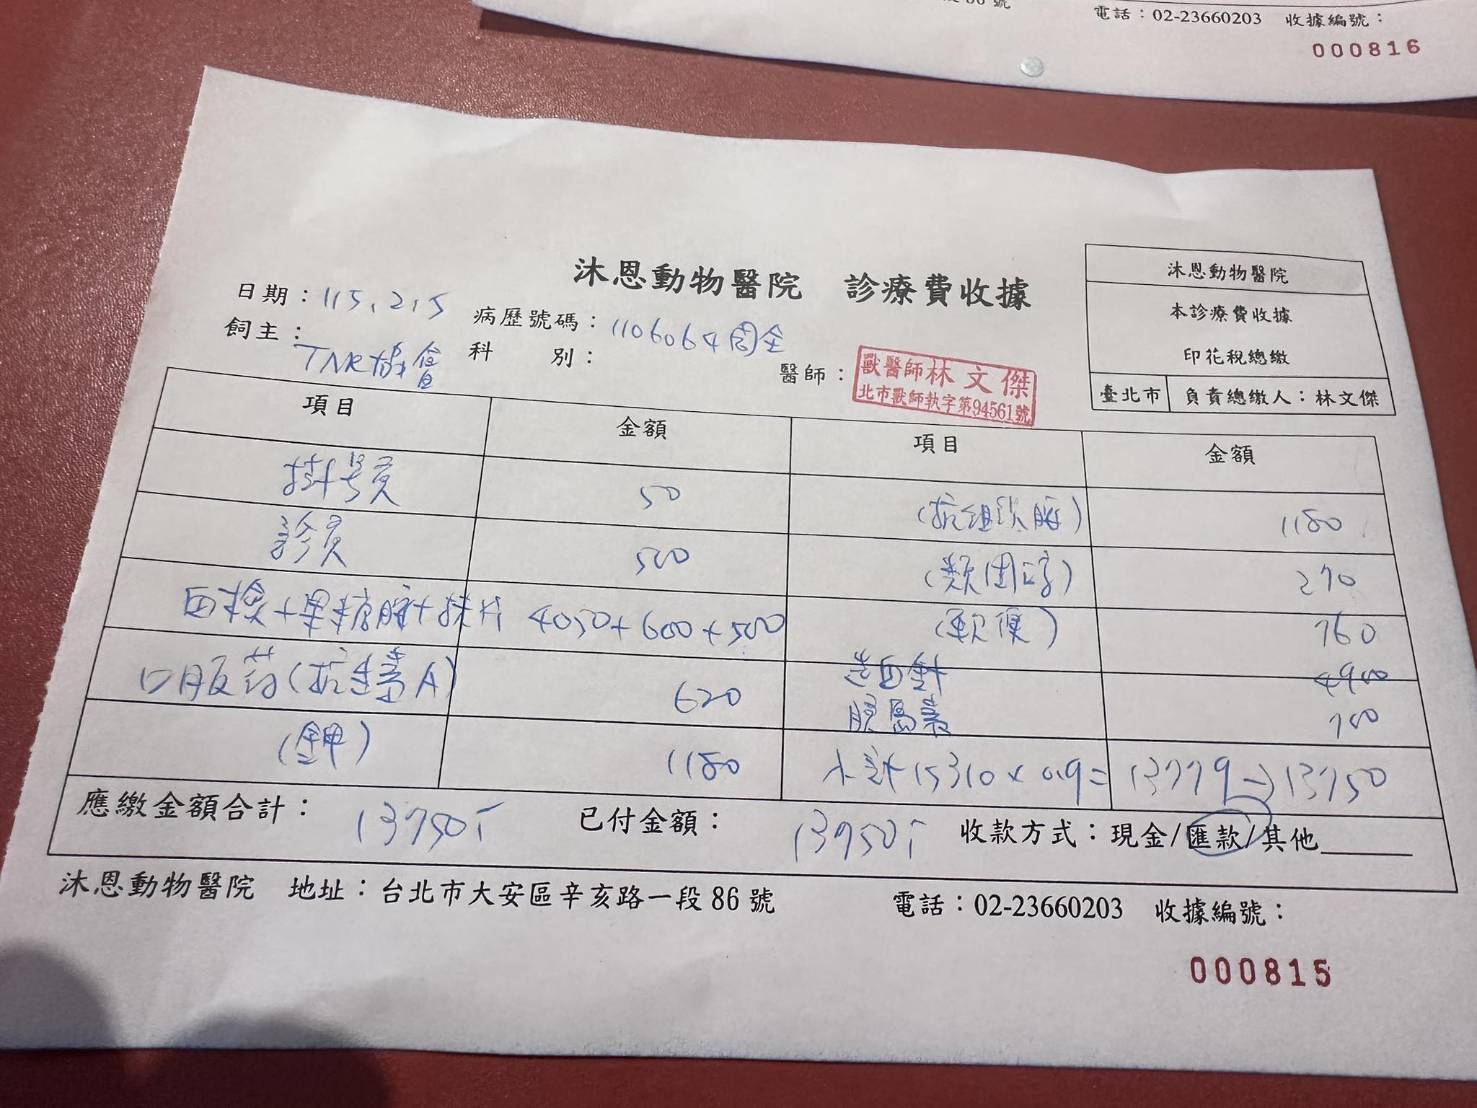 電話：02-23660203 收據編號：
000816
沐恩動物醫院 診療費收據
沐恩動物醫院
本診療費收據
印花稅總繳
臺北市 負責總繳人：林文傑
日期：115.2.5 病歷號碼：1106064
飼主：TNR協會 科 別： 醫師：
獸醫師林文傑
北市獸師執字第94561號
項目 金額 項目 金額
掛号費 50 (抗組織胺) 1180
診費 500 (類固醇) 270
血檢+果糖胺+抹片 4050+600+500 (軟便) 760
口服药(抗生素A) 620 造血針 4900
胰島素 700
(鉀) 1180 小計15310×0.9= 13779→13750
應繳金額合計： 13750 已付金額： 13750 收款方式：現金/匯款/其他
沐恩動物醫院 地址：台北市大安區辛亥路一段86號 電話：02-23660203 收據編號：
000815